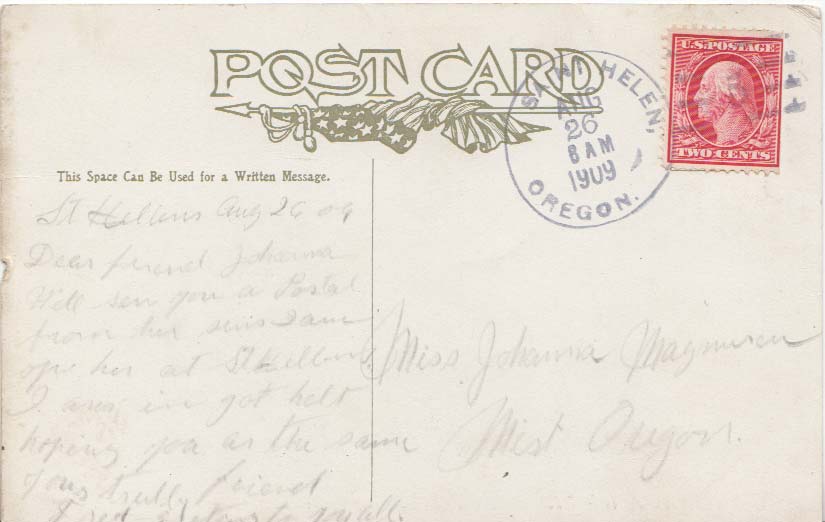 POST CARD
SAINT HELEN,
AUG
26
8 AM
1909
OREGON.
U.S. POSTAGE
TWO CENTS
This Space Can Be Used for a Written Message.
St Hellens Aug 26 09
Dear friend Johanna
Well sen you a Postal
from her sins I am
ope her at St Hellens.
I am in got helt
hoping you ar the same
yous trully friend
to you all.
Miss Johanna Magnusen
Mist Oregon.